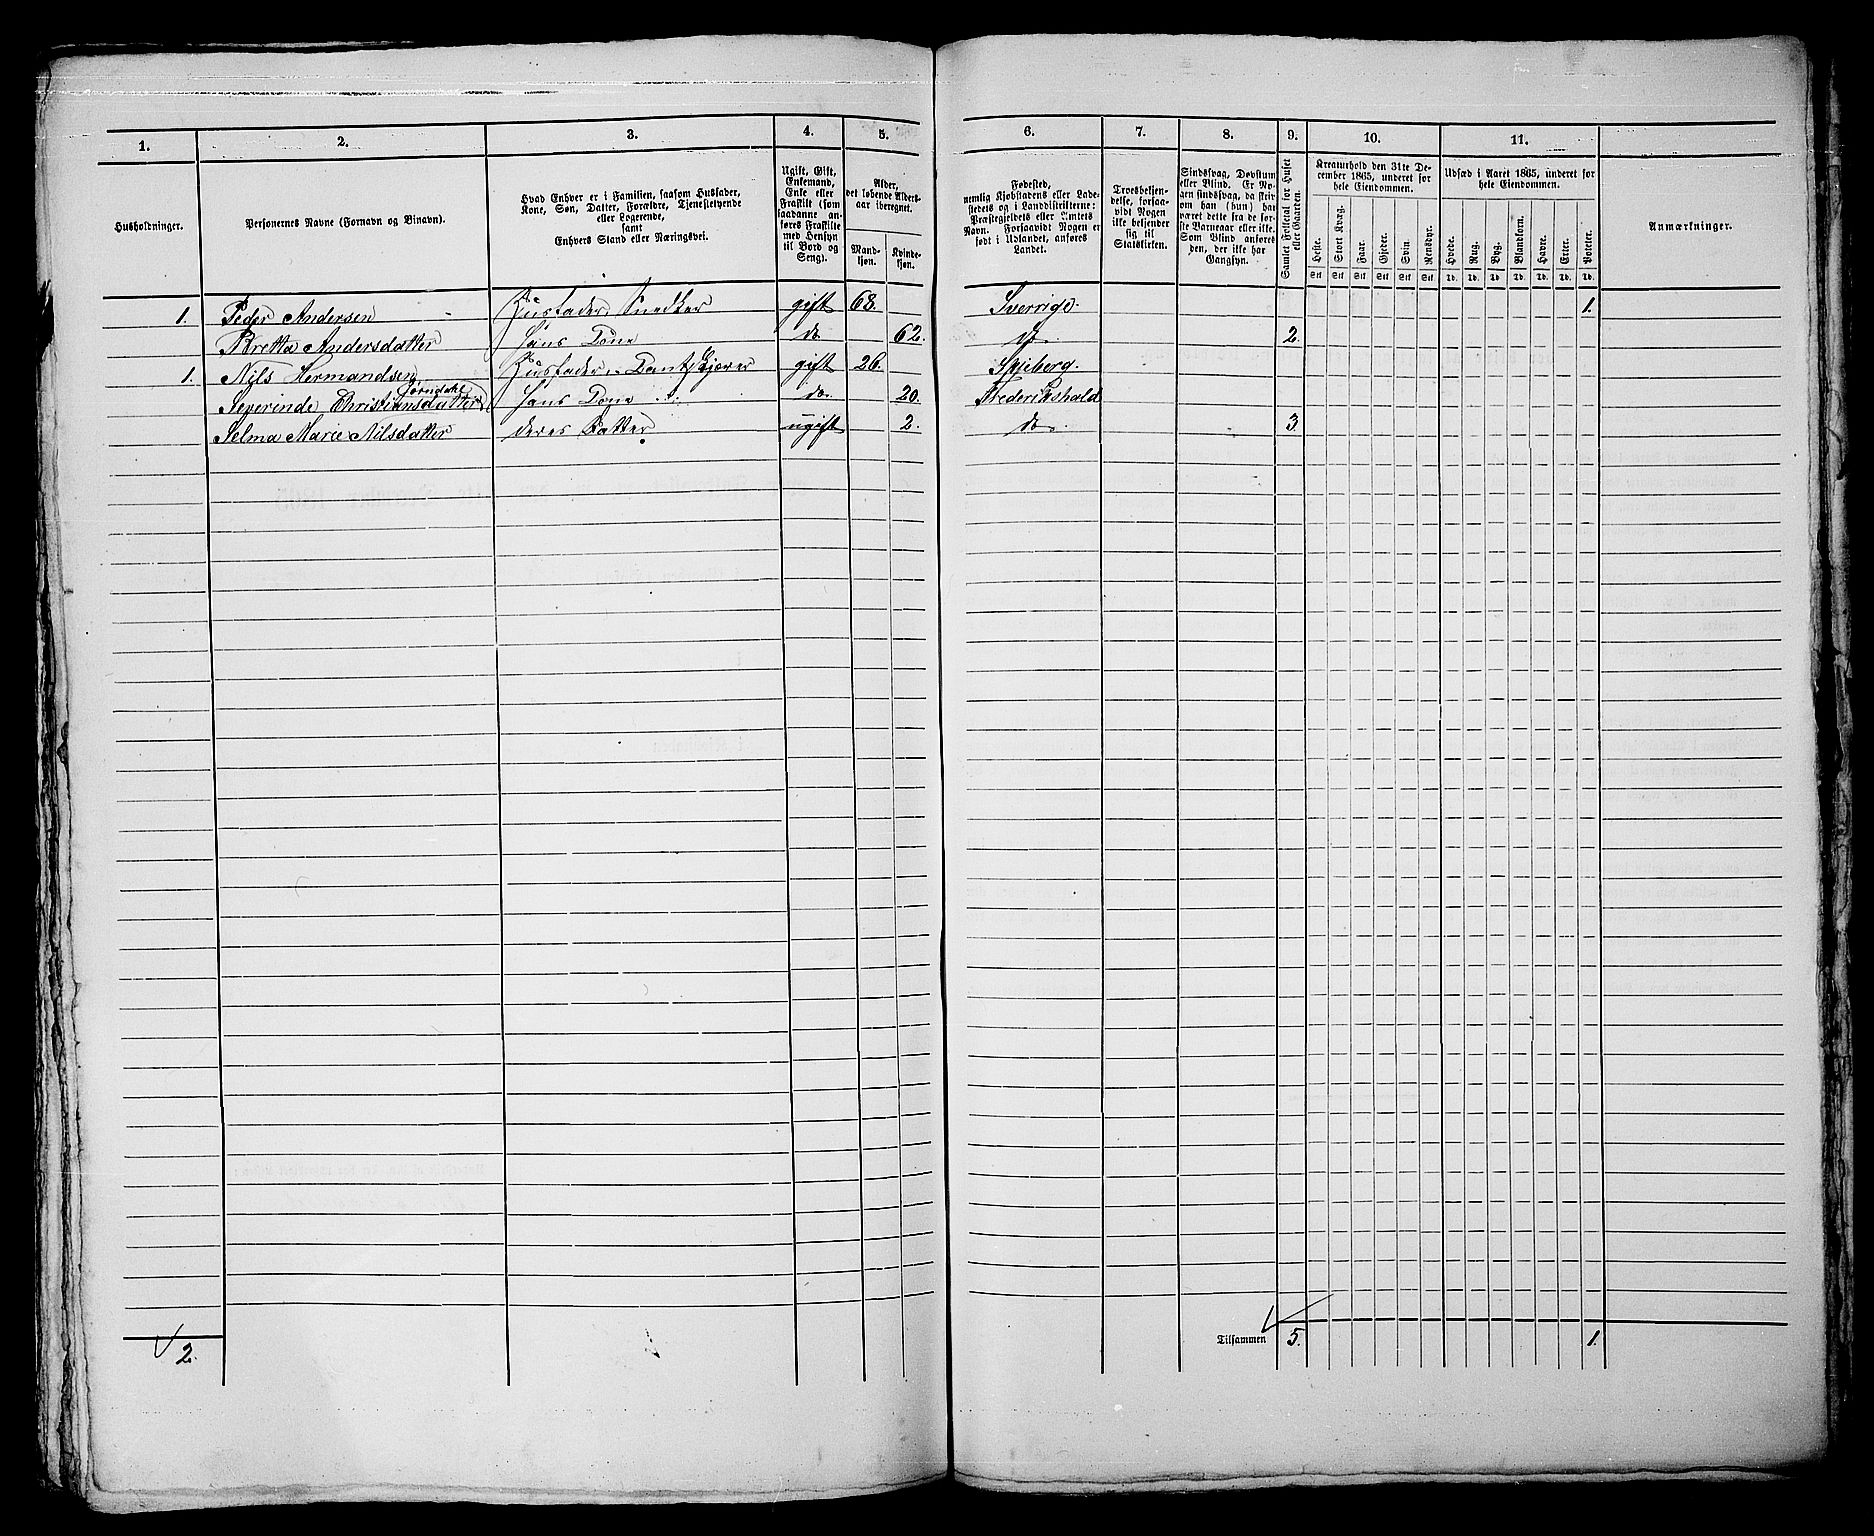 1. 2. 3. 4. 5. 6. 7. 8. 9. 10. 11.
Husholdninger.
Personernes Navne (Fornavn og Binavn).
Hvad Enhver er i Familien, saasom Husfader,
Kone, Søn, Datter, Forældre, Tjenestetyende
eller Logerende,
samt
Enhvers Stand eller Næringsvei.
Ugift, Gift,
Enkemand,
Enke eller
Fraskilt (som
saadanne an-
føres Fraskilte
med Hensyn
til Bord og
Seng).
Alder,
det løbende Alders-
aar iberegnet.
Mand-
kjøn.
Kvinde-
kjøn.
Fødested,
nemlig Kjøbstadens eller Lade-
stedets og i Landdistrikterne:
Præstegjeldets eller Amtets
Navn. Forsaavidt Nogen er
født i Udlandet, anføres
Landet.
Troesbekjen-
delse, forsaa-
vidt Nogen
ikke bekjender
sig til
Statskirken.
Sindssvag, Døvstum
eller Blind. Er No-
gen sindssvag, da skriv
om han (hun) har
været dette fra de før-
ste Barneaar eller ikke.
Som Blind anføres
den, der ikke har
Gangsyn.
Samlet Folketal for Huset
eller Gaarden.
Kreaturhold den 31te De-
cember 1865, underet for
hele Eiendommen.
Heste. Stort Kvæg. Faar. Gjeder. Svin. Rensdyr.
Stk Stk Stk Stk Stk Stk
Udsæd i Aaret 1865, underet for
hele Eiendommen.
Hvede. Rug. Byg. Blandkorn. Havre. Erter. Poteter.
Td. Td. Td. Td. Td. Td. Td.
Anmærkninger.
1. Peder Andersen Husfader, Snedker gift 68. Sverrige. 1.
Bretta Andersdatter Hans Kone do 62. do. 2.
1. Nils Hermandsen Husfader gift 26. Skjeberg.
Jørndahl
Severinde Christiansdatter Hans Kone do. 20. Frederikshald
Selma Marie Nilsdatter deres Datter ugift 2. do. 3.
Tilsammen 5. 1.
2.